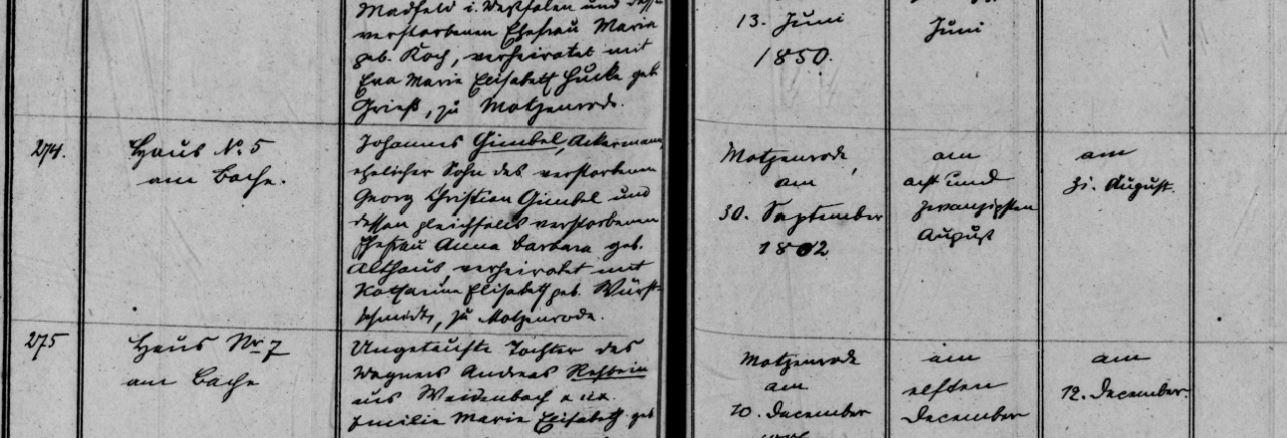 Madfeld i. Westfalen und
verstorbenen Ehefrau Maria
geb. Koch, verheiratet mit
Eva Marie Elisabeth Hucke geb
Grieß, zu Motzenrode.
13. Juni
1850.
Juni
274.
Haus No. 5
am Bache.
Johannes Gimbel, Ackermann,
ehelicher Sohn des verstorbenen
Georg Christian Gimbel und
dessen gleichfalls verstorbenen
Ehefrau Anna Barbara geb.
Althaus, verheiratet mit
Katharina Elisabeth geb. Würst-
schmidt, zu Motzenrode.
Motzenrode,
am
30. September
1802
am
acht und
zwanzigsten
August
am
31. August.
275
Haus Nr. 7
am Bache
Ungetaufte Tochter des
Wagners Andreas Rehbein
aus Weidenbach
Emilie Marie Elisabeth geb
Motzenrode
am
10. December
am
elften
December
am
12. December.